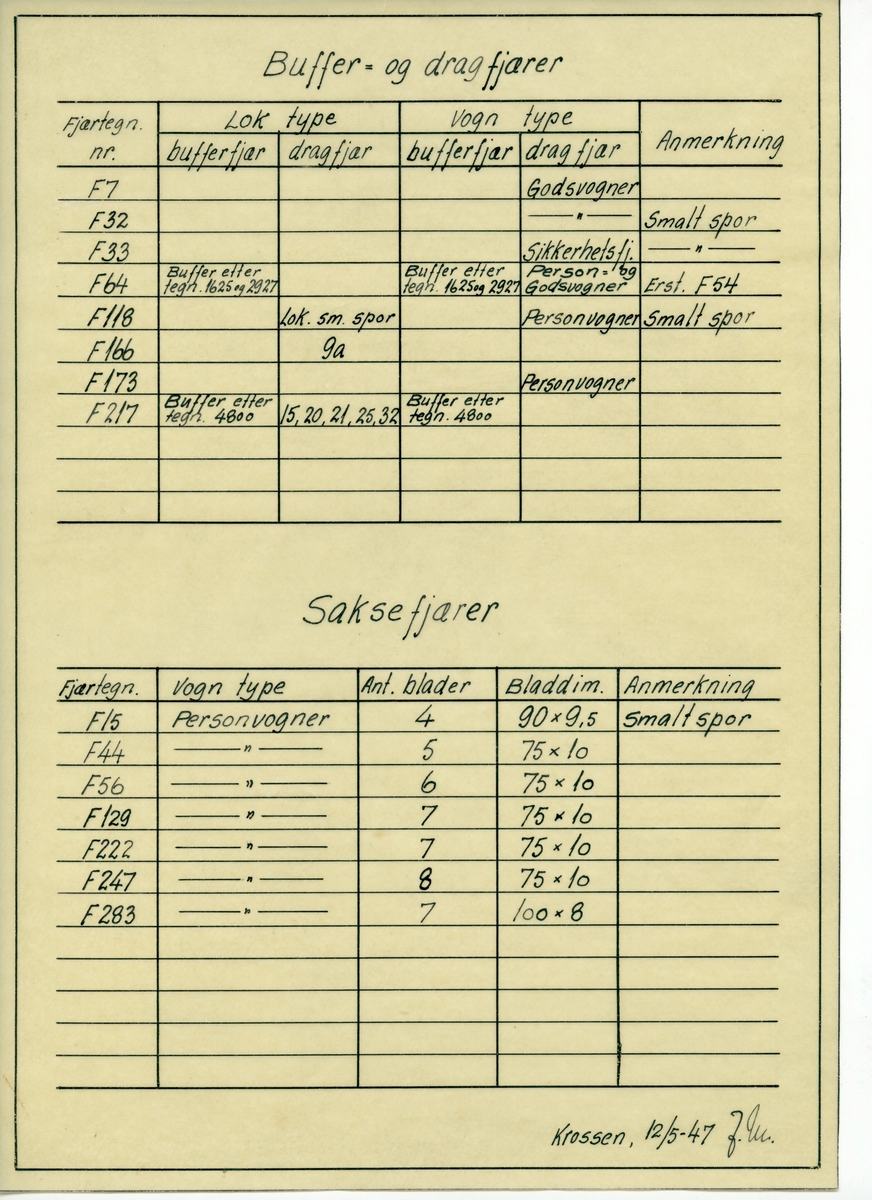 Buffer= og dragfjærer
Fjærtegn. nr. Lok type Vogn type Anmerkning
bufferfjær dragfjær bufferfjær dragfjær
F7 Godsvogner
F32 —"— Smalt spor
F33 Sikkerhetsfj. —"—
F64 Buffer etter tegn. 1625 og 2927 Buffer etter tegn. 1625 og 2927 Person= og Godsvogner Erst. F54
F118 Lok. sm. spor Personvogner Smalt spor
F166 9a
F173 Personvogner
F217 Buffer etter tegn. 4800 15, 20, 21, 25, 32 Buffer etter tegn. 4800
Saksefjærer
Fjærtegn. Vogn type Ant. blader Bladdim. Anmerkning
F15 Personvogner 4 90 × 9,5 Smalt spor
F44 —"— 5 75 × 10
F56 —"— 6 75 × 10
F129 —"— 7 75 × 10
F222 —"— 7 75 × 10
F247 —"— 8 75 × 10
F283 —"— 7 100 × 8
Krossen, 12/5-47